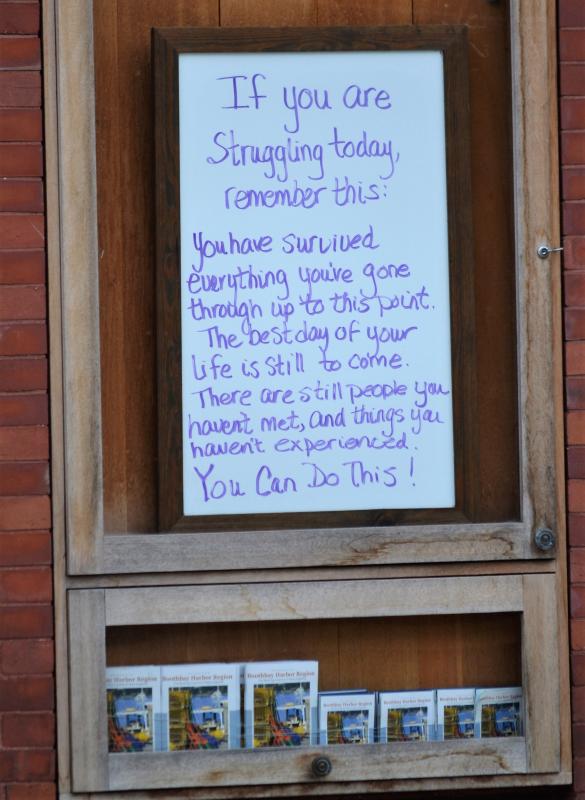 If you are
Struggling today,
remember this:
You have survived
everything you've gone
through up to this point.
The best day of your
life is still to come.
There are still people you
haven't met, and things you
haven't experienced.
You Can Do This!
Harbor Region
Boothbay Harbor Region
Boothbay Harbor Region
Boothbay Harbor Region
Boothbay Harbor Region
Boothbay Harbor
Boothbay Harbor Region